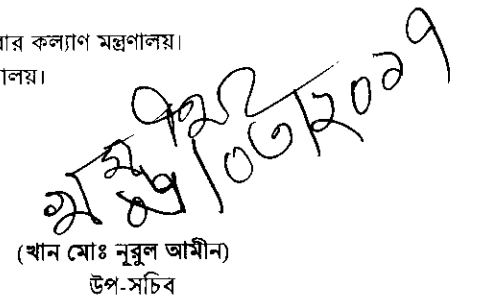 বার কল্যাণ মন্ত্রণালয়।
ালয়।
(খান মোঃ নূরুল আমীন)
উপ-সচিব